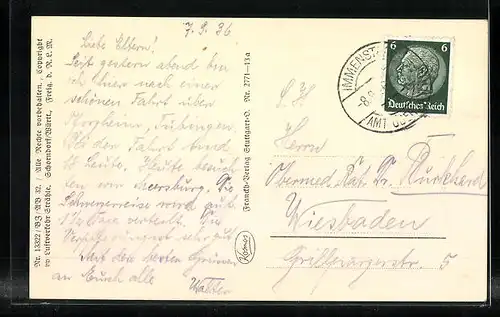 7. 9. 36
Liebe Eltern!
Seit gestern abend bin
ich hier nach einer
schönen Fahrt über
Pforzheim, Tübingen.
Bei der Fahrt sind
Leute. Heute besuch
ten wir Meersburg. Die
wird gut
verteilt. Die
Verpflegung ist sehr gut.
Mit den besten Grüssen
an Euch alle
Walter
Nr. 13322/BJ/AB XI. / Alle Rechte vorbehalten. Copyright
by Luftverkehr Strähle, Schorndorf/Württ. Freig. d. R.L.M.
Franckh-Verlag Stuttgart-O. Nr. 2771-13a
Kosmos
IMMENST
AMT
6 6
Deutsches Reich
Herrn
Obermed. Rat Dr. Burkhard
Wiesbaden
Grillparzerstr. 5